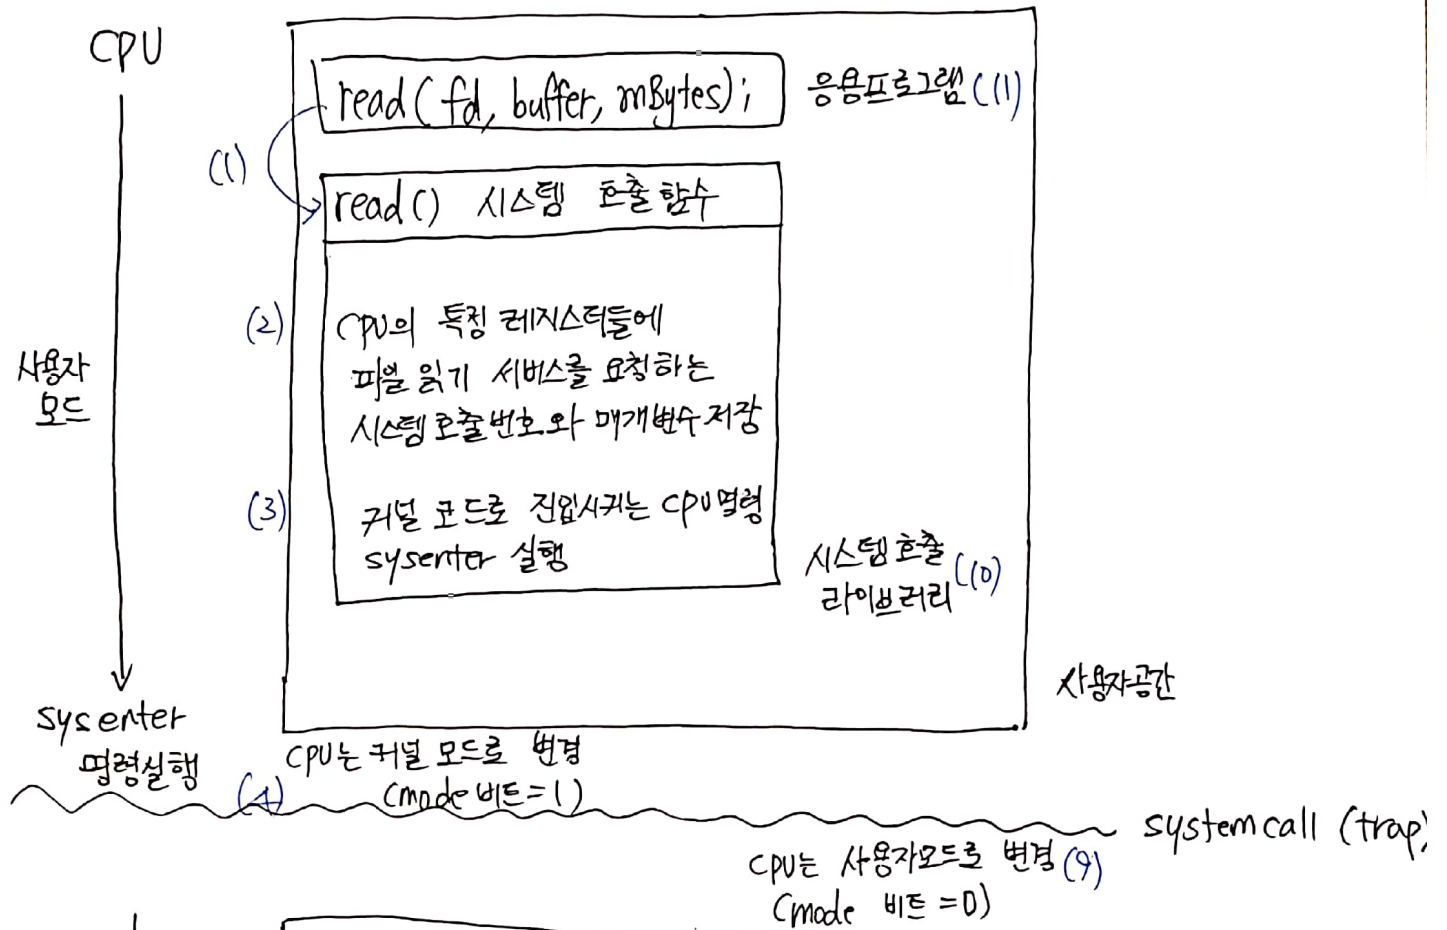 CPU
read( fd, buffer, mBytes);
응용프로그램 (11)
(1)
read() 시스템 호출 함수
(2)
CPU의 특정 레지스터들에
파일 읽기 서비스를 요청하는
시스템 호출 번호와 매개변수 저장
사용자
모드
(3)
커널 코드로 진입시키는 CPU 명령
sysenter 실행
시스템 호출
라이브러리
(10)
사용자공간
sysenter
명령실행
CPU는 커널 모드로 변경
(4)
(mode 비트=1)
systemcall (trap)
CPU는 사용자모드로 변경 (9)
(mode 비트 =0)